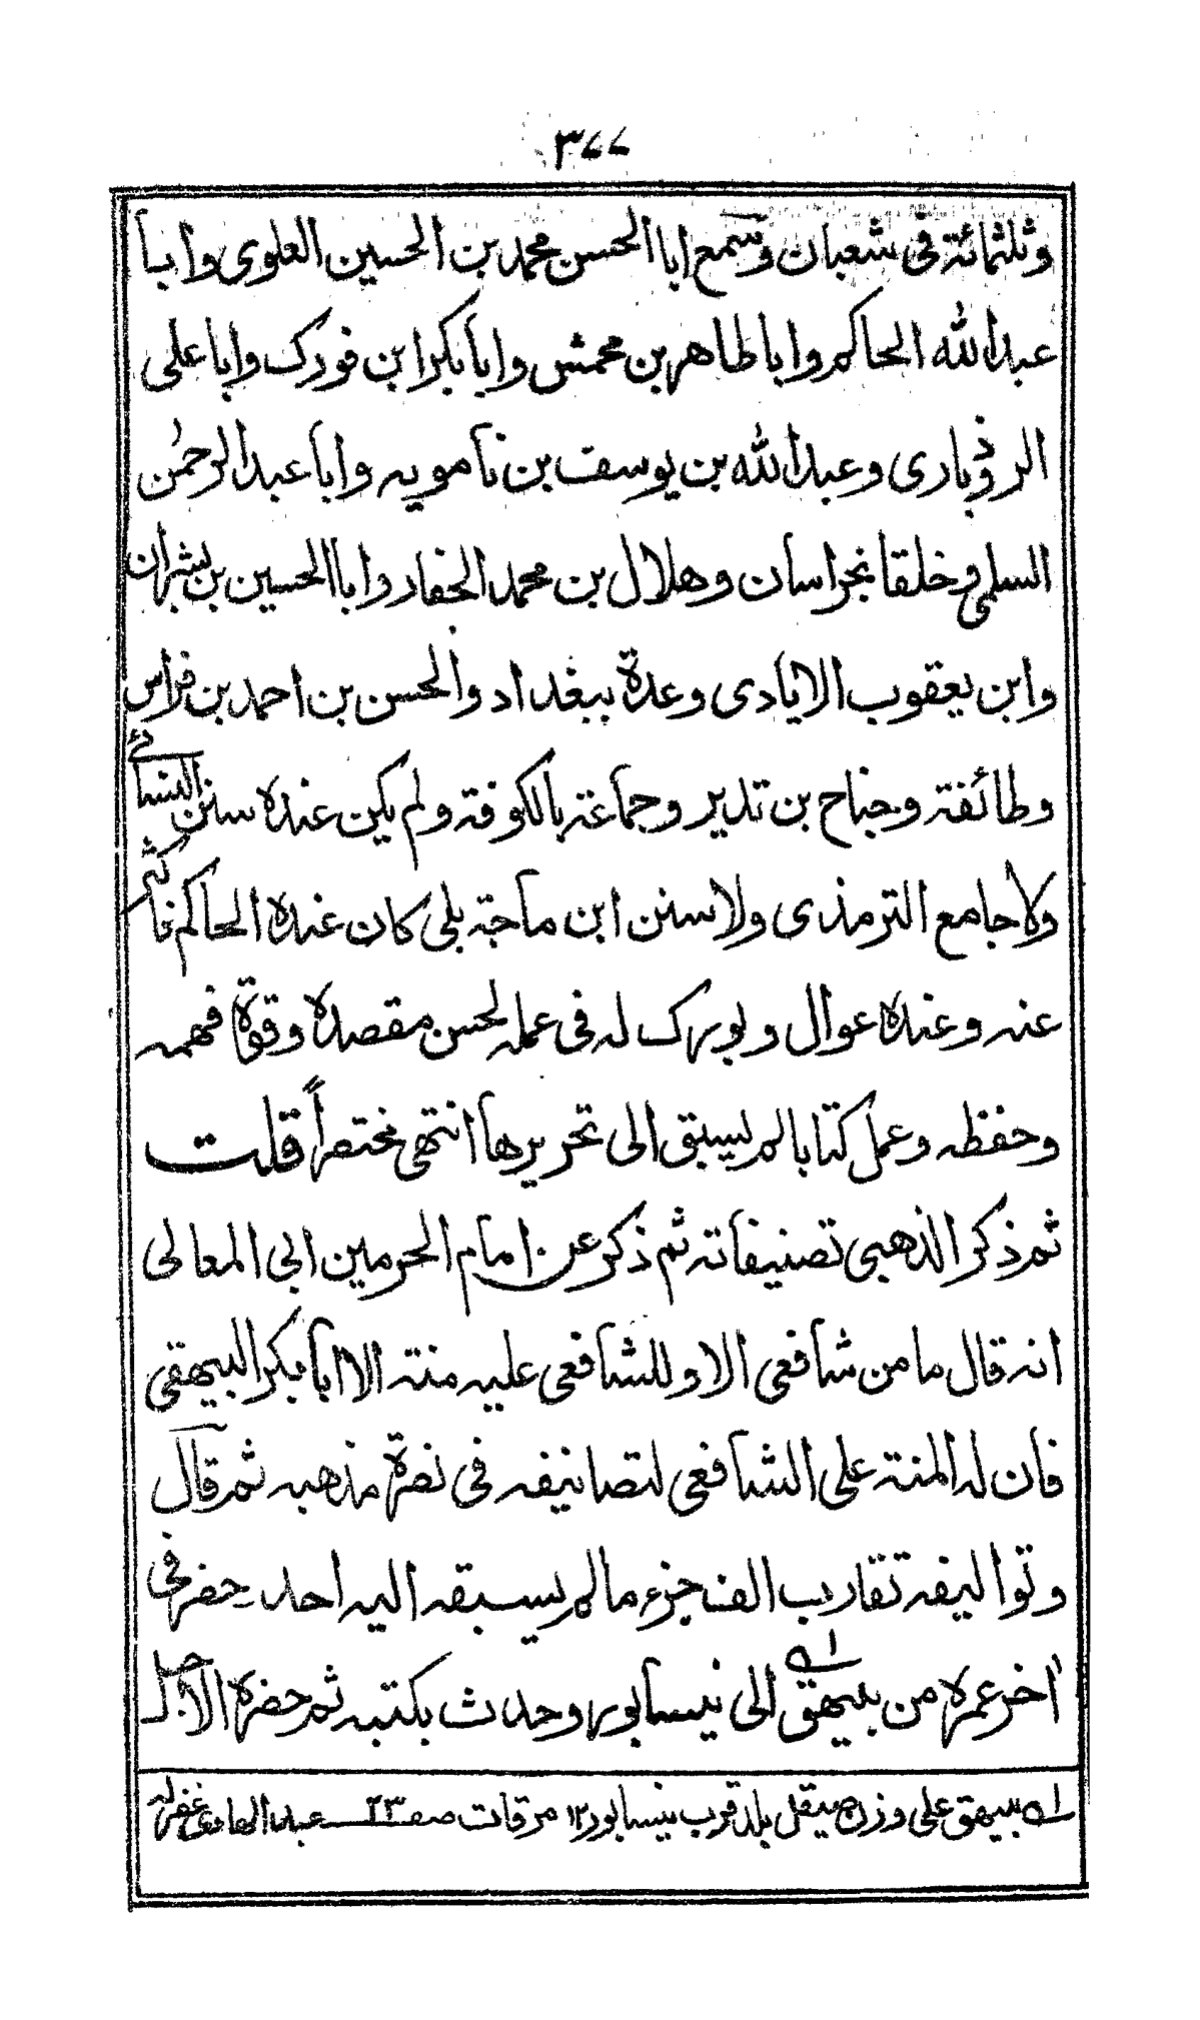 ٣٧٧
وثلثمائة فى شعبان وسمع ابا الحسن محمد بن الحسين العلوى وابا
عبد الله الحاكم وابا طاهر بن محمش وابا بكر ابن فورك وابا على
الروذبارى وعبد الله بن يوسف بن نامويه وابا عبد الرحمٰن
السلمى وخلقا بخراسان وهلال بن محمد الحفار وابا الحسين بن بشران
وابن يعقوب الايادى وعدة ببغداد والحسن بن احمد بن فراس
وطائفة وجناح بن تدير وجماعة بالكوفة ولم يكن عنده سنن النسائى
ولا جامع الترمذى ولا سنن ابن ماجة بلى كان عنده الحاكم فاكثر
عنه وعنده عوال وبورك له فى عمله لحسن مقصده وقوة فهمه
وحفظه وعمل كتابا لم يسبق الى تحريرها انتهى مختصراً قلت
ثم ذكر الذهبى تصنيفاته ثم ذكر عن امام الحرمين ابى المعالى
انه قال ما من شافعى الا وللشافعى عليه منة الا ابا بكر البيهقى
فان له المنة على الشافعى لتصانيفه فى نصرة مذهبه ثم قال
وتواليفه تقارب الف جزء ما لم يسبقه اليه احد حضر فى
اخر عمره من بيهق ا؎ الى نيسابور وحدث بكتبه ثم حضره الاجل
ا؎ بيهق على وزن صيقل بلد قرب نيسابور ١٢ مرقات صفـ ٢٣ عبد الهادى غفرله